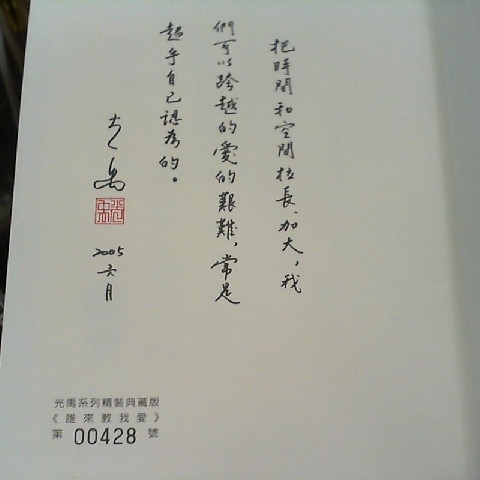 把時間和空間拉長、加大，我
們可以跨越的愛的艱難，常是
超乎自己認為的。
光禹
2005
六月
光禹系列精裝典藏版
《誰來教我愛》
第 00428 號